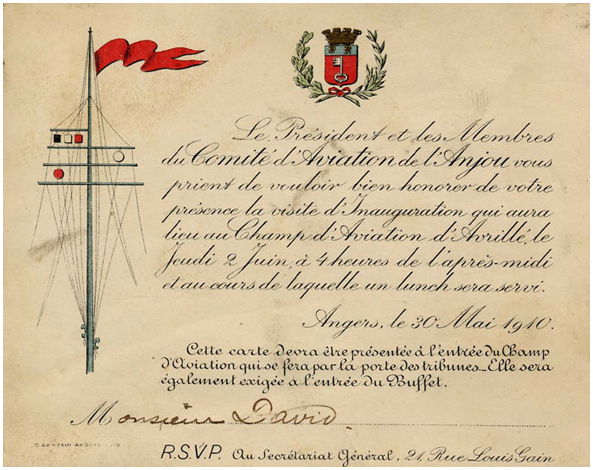 Le Président et les Membres
du Comité d'Aviation de l'Anjou vous
prient de vouloir bien honorer de votre
présence la visite d'Inauguration qui aura
lieu au Champ d'Aviation d'Avrillé, le
Jeudi 2 Juin, à 4 heures de l'après-midi
et au cours de laquelle un lunch sera servi.
Angers, le 30 Mai 1910.
Cette carte devra être présentée à l'entrée du Champ
d'Aviation qui se fera par la porte des tribunes._Elle sera
également exigée à l'entrée du Buffet.
Monsieur David
R.S.V.P. Au Secrétariat Général, 21, Rue Louis Gain